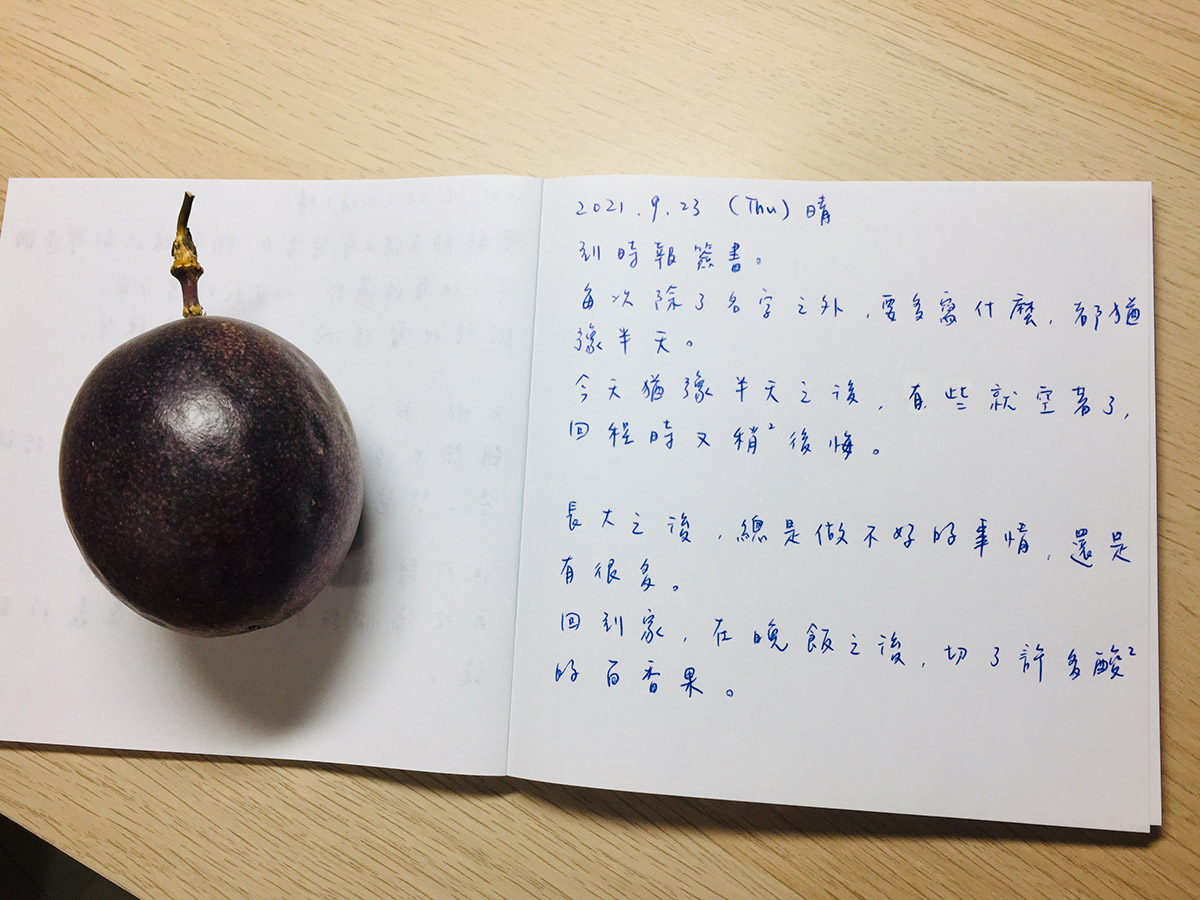 2021.9.23 (Thu) 晴
到時報簽書。
每次除了名字之外，要多寫什麼，都猶
豫半天。
今天猶豫半天之後，有些就空著了，
回程時又稍²後悔。
長大之後，總是做不好的事情，還是
有很多。
回到家，在晚飯之後，切了許多酸²
的百香果。